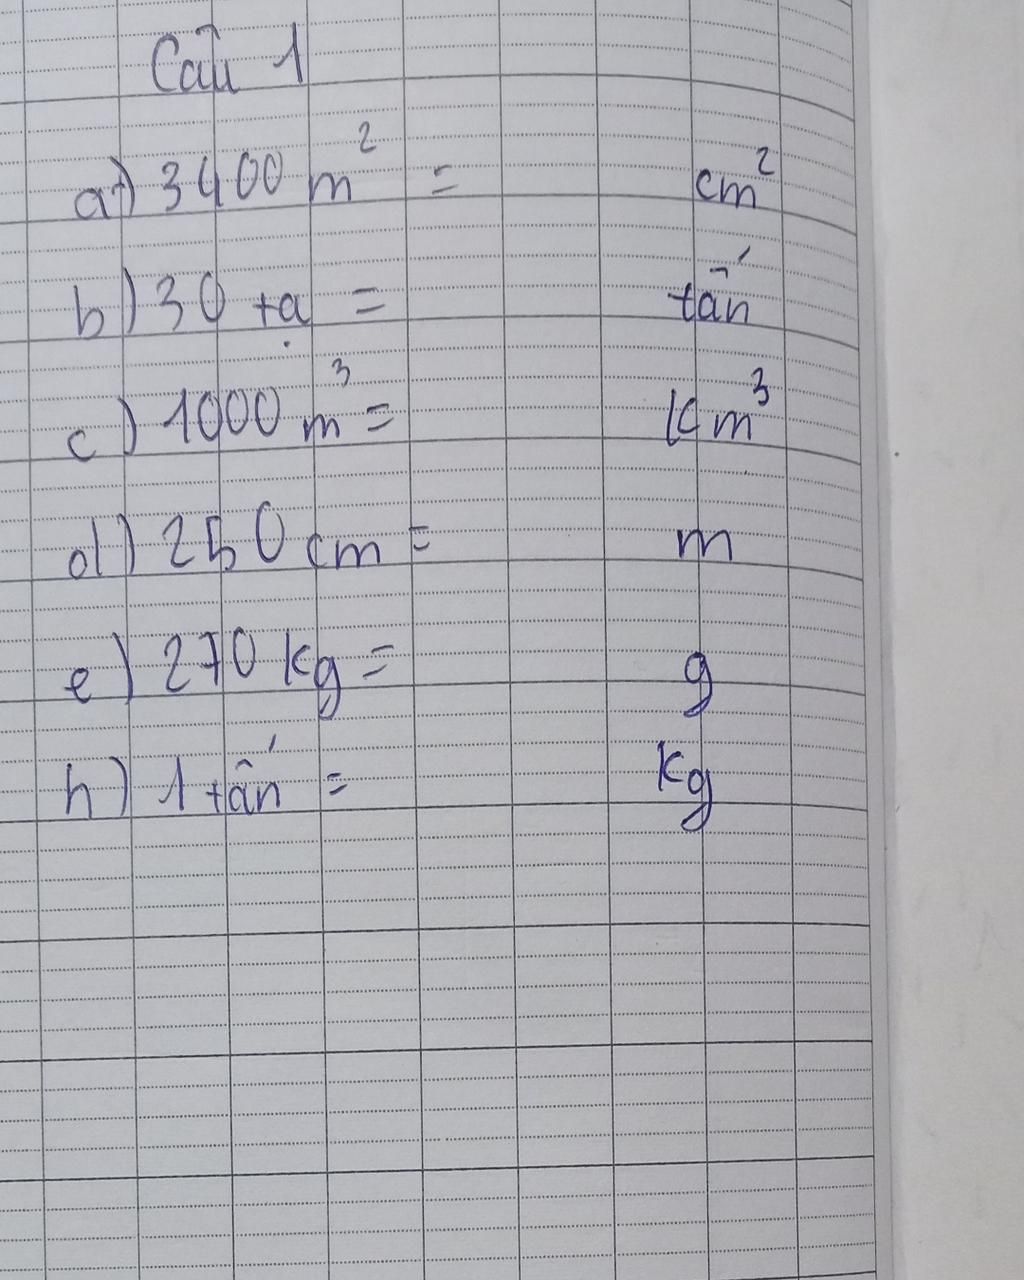 Câu 1
a) 3400 m² = cm²
b) 30 tạ = tấn
c) 1000 m³ = Km³
d) 250 cm = m
e) 270 kg = g
h) 1 tấn = kg